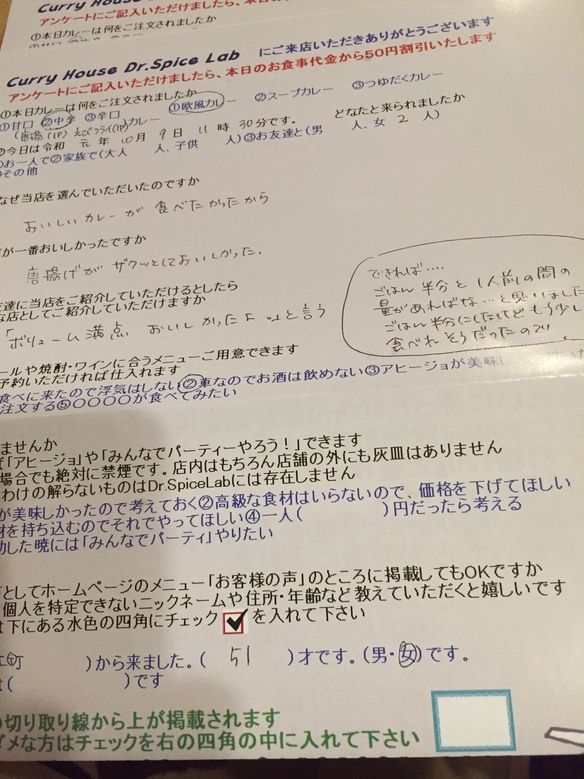 Curry House
アンケートにご記入いただけましたら、本日のお
①本日カレーは何をご注文されましたか
Curry House Dr.Spice Lab にご来店いただきありがとうございます
アンケートにご記入いただけましたら、本日のお食事代金から50円割引いたします
①本日カレーは何をご注文されましたか
①甘口 ②中辛 ③辛口 ①欧風カレー ②スープカレー ③つゆだくカレー
(唐揚(1P) えびフライ(1P)カレー
②今日は令和 元 年 10 月 9 日 11 時 30 分です。 どなたと来られましたか
お一人で②家族で(大人 人、子供 人)③お友達と(男 人、女 2 人)
その他
なぜ当店を選んでいただいたのですか
おいしいカレーが 食べたかったから
が一番おいしかったですか
唐揚げがザクッとしておいしかった.
できれば‥‥
ごはん半分と1人前の間の
量があればな…と思いました
ごはん半分にしたけどもう少し
食べれそうだったので
達に当店をご紹介していただけるとしたら
な店としてご紹介していただけますか
「ボリューム満点 おいしかったよ」と言う
ールや焼酎・ワインに合うメニューご用意できます
予約いただければ仕入れます
食べに来たので浮気はしない②車なのでお酒は飲めない③アヒージョが美味し
注文する⑤〇〇〇〇が食べてみたい
ませんか
ば「アヒージョ」や「みんなでパーティーやろう！」できます
場合でも絶対に禁煙です。店内はもちろん店舗の外にも灰皿はありません
わけの解らないものはDr.SpiceLabには存在しません
が美味しかったので考えておく②高級な食材はいらないので、価格を下げてほしい
材を持ち込むのでそれでやってほしい④一人( )円だったら考える
功した暁には「みんなでパーティ」やりたい
としてホームページのメニュー「お客様の声」のところに掲載してもOKですか
個人を特定できないニックネームや住所・年齢など教えていただくと嬉しいです
は下にある水色の四角にチェック ✔ を入れて下さい
町 )から来ました。( 51 )才です。(男・女)です。
は( )です
切り取り線から上が掲載されます
ダメな方はチェックを右の四角の中に入れて下さい